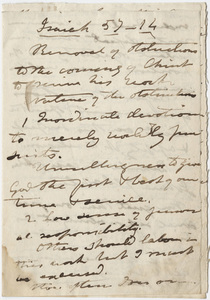 Isaiah 57-14
Removal of Obstructions
to the coming of Christ
to his work
Nature of the Obstructions
1 Inordinate devotion
to merely worldly pur
suits.
Unwillingness to give
God the first & best of our
time & service.
2. Low sense of
responsibility.
Others should labour in
this work but I must
be excused.